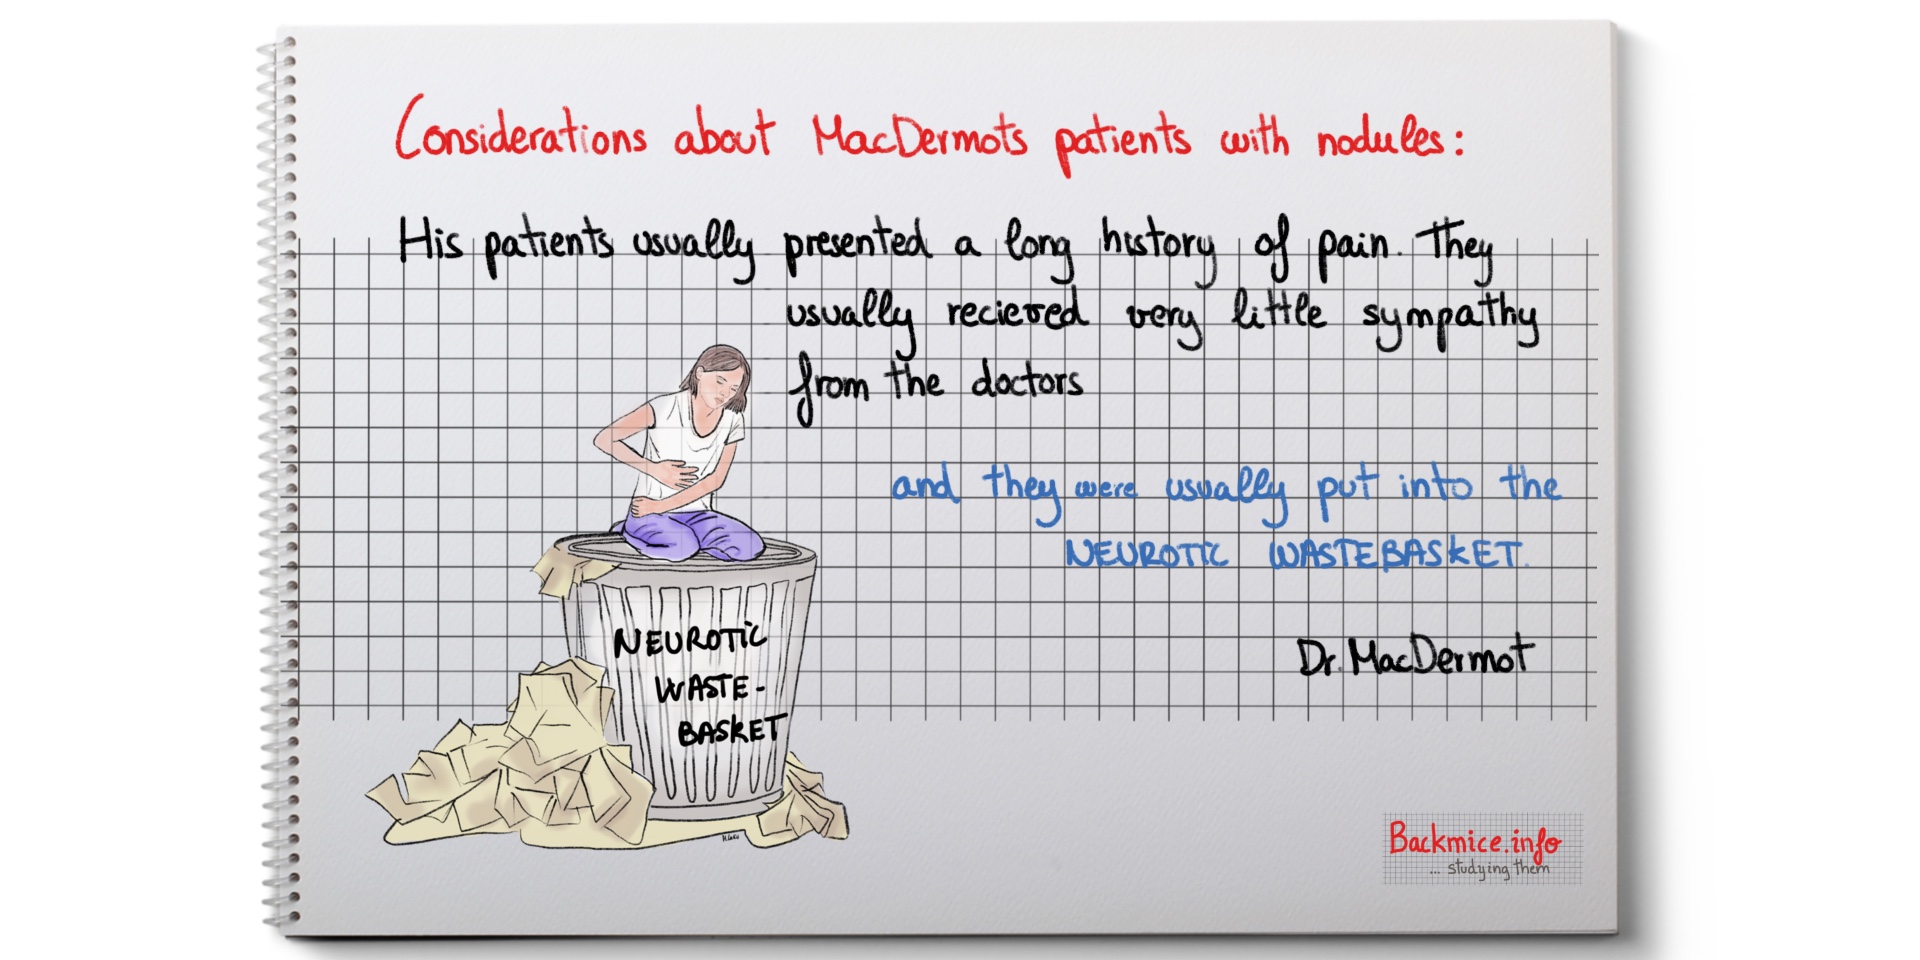 Considerations about MacDermots patients with nodules:
His patients usually presented a long history of pain. They
usually recieved very little sympathy
from the doctors
and they were usually put into the
NEUROTIC WASTEBASKET.
Dr. MacDermot
NEUROTIC
WASTE-
BASKET
Backmice.info
... studying them